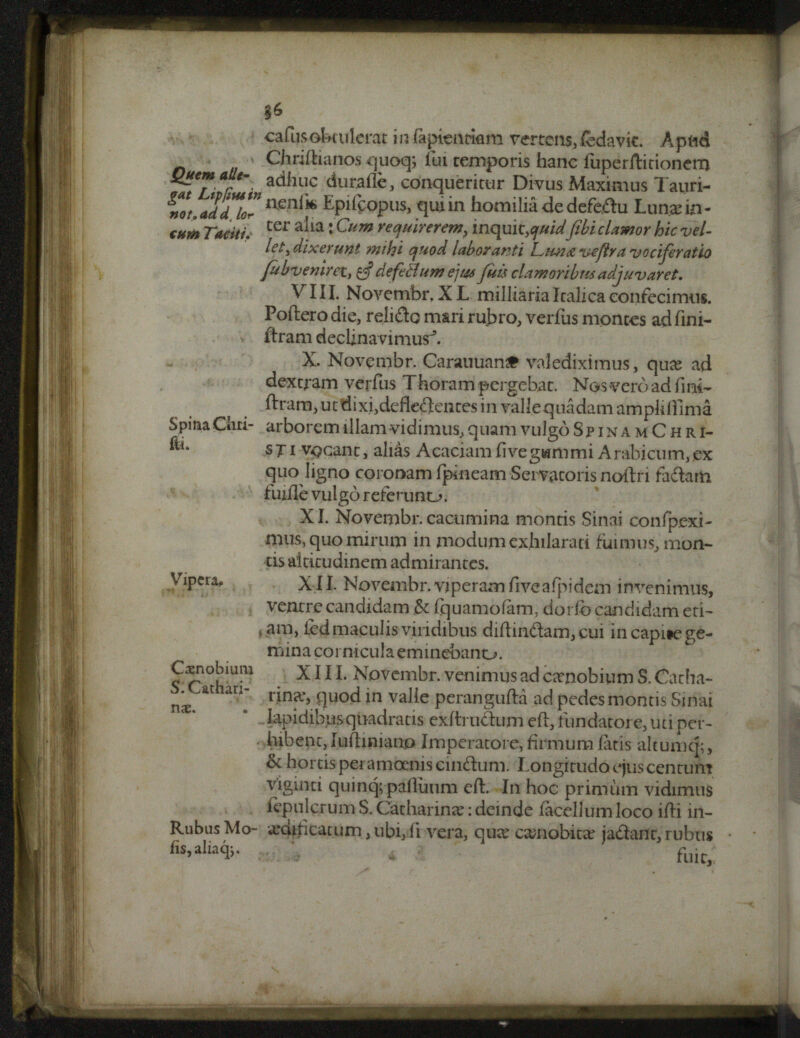 36
casus obtulerat in sapientiam vertens, sedavit. Apud
Christianos quoq; sui temporis hanc superstitionem
Quem alle-
gat Lipsius in
not, ad d. lo-
cum Taciti.
adhuc durasse, conqueritur Divus Maximus Tauri-
nensis Episcopus, qui in homiliâ de defectu Lunæ in-
ter alia: Cum requirerem, inquit, quid sibi clamor hic vel-
let, dixerunt mihi quod laboranti Lunæ vestra vociferatio
subveniret, & defectum ejus suis clamoribus adjuvaret.
VIII. Novembr. XL milliaria Italica confecimus.
Postero die, relicto mari rubro, versus montes ad sini-
stram declinavimus.
X. Novembr. Carauuanæ valediximus, quæ ad
dextram versus Thoram pergebat. Nos verò ad sini-
stram, ut dixi, deflectentes in valle quâdam amplissimâ
Spina Chri-
sti.
arborem illam vidimus, quam vulgò SPINAM CHRI-
STI vocant, aliàs Acaciam sive gummi Arabicum, ex
quo ligno coronam spineam Servatoris nostri factam
fuisse vulgò referunt.
XI. Novembr. cacumina montis Sinai conspexi-
mus, quo mirum in modum exhilarati fuimus, mon-
tis altitudinem admirantes.
Vipera.
XII. Novembr. viperam sive aspidem invenimus,
ventre candidam & squamosam, dorso candidam eti-
am, sed maculis viridibus distinctam, cui in capite ge-
mina cornicula eminebant.
Cænobium
S. Cathari-
næ.
XIII. Novembr. venimus ad cænobium S. Catha-
rinæ, quod in valle perangustâ ad pedes montis Sinai
lapidibus quadratis exstructum est, fundatore, uti per-
hibent, Iustiniano Imperatore, firmum satis altumq;,
& hortis peramœnis cinctum. Longitudo ejus centum
viginti quinq; passuum est. In hoc primùm vidimus
sepulcrum S. Catharinæ: deinde sacellum loco isti in-
Rubus Mo-
sis, aliaq;.
ædificatum, ubi, si vera, quæ cænobitæ jactant, rubus
fuit,